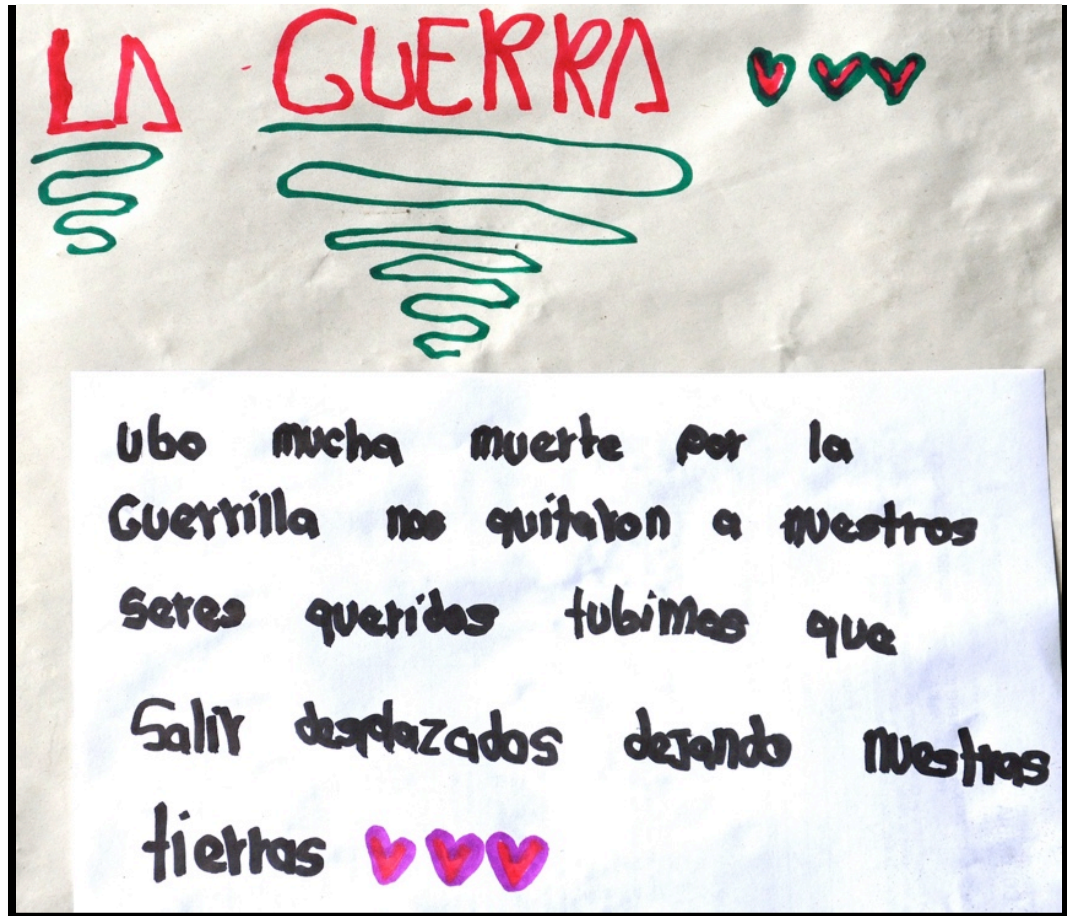 LA GUERRA
ubo mucha muerte por la
Guerrilla nos quitaron a nuestros
seres queridos tubimos que
Salir desplazados dejando nuestras
tierras